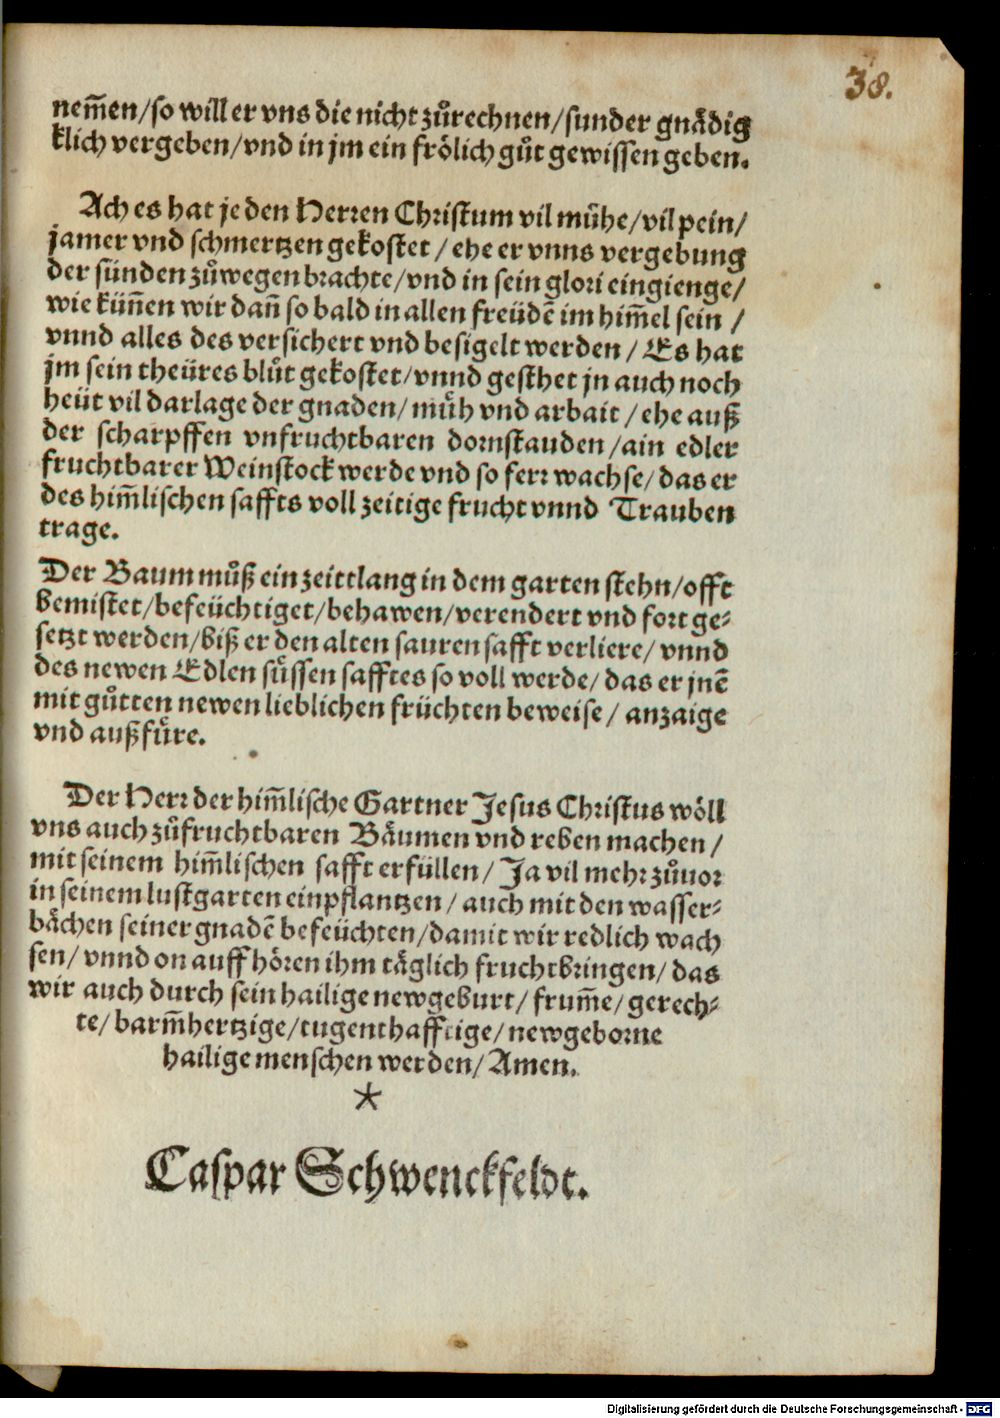 38.
nem̃en/so will er vns die nicht zůrechnen/sunder gnådig
klich vergeben/vnd in jm ein frölich gůt gewissen geben.
Ach es hat je den Herren Christum vil mühe/vil pein/
jamer vnd schmertzen gekostet/ehe er vnns vergebung
der sünden zůwegen brachte/vnd in sein glori eingienge/
wie küñen wir dañ so bald in allen freüdẽ im him̃el sein/
vnnd alles des versichert vnd besigelt werden/Es hat
jm sein theüres blůt gekostet/vnnd gesthet jn auch noch
heüt vil darlage der gnaden/müh vnd arbait/ehe auß
der scharpffen vnfruchtbaren dornstauden/ain edler
fruchtbarer Weinstock werde vnd so ferr wachse/das er
des him̃lischen saffts voll zeitige frucht vnnd Trauben
trage.
Der Baum můß ein zeittlang in dem garten stehn/offt
bemistet/befeüchtiget/behawen/verendert vnd fort ge-
setzt werden/biß er den alten sauren safft verliere/vnnd
des newen Edlen süssen safftes so voll werde/das er jnẽ
mit gůtten newen lieblichen früchten beweise/anzaige
vnd außfüre.
Der Herr der him̃lische Gartner Jesus Christus wöll
vns auch zůfruchtbaren Båumen vnd reben machen/
mit seinem him̃lischen safft erfüllen/Ja vil mehr zůuor
in seinem lustgarten einpflantzen/auch mit den wasser-
båchen seiner gnadẽ befeüchten/damit wir redlich wach
sen/vnnd on auff hören ihm tåglich fruchtbringen/das
wir auch durch sein hailige newgeburt/frum̃e/gerech-
te/barm̃hertzige/tugenthafftige/newgeborne
hailige menschen werden/Amen.
*
Caspar Schwenckfeldt.
Digitalisierung gefördert durch die Deutsche Forschungsgemeinschaft - DFG